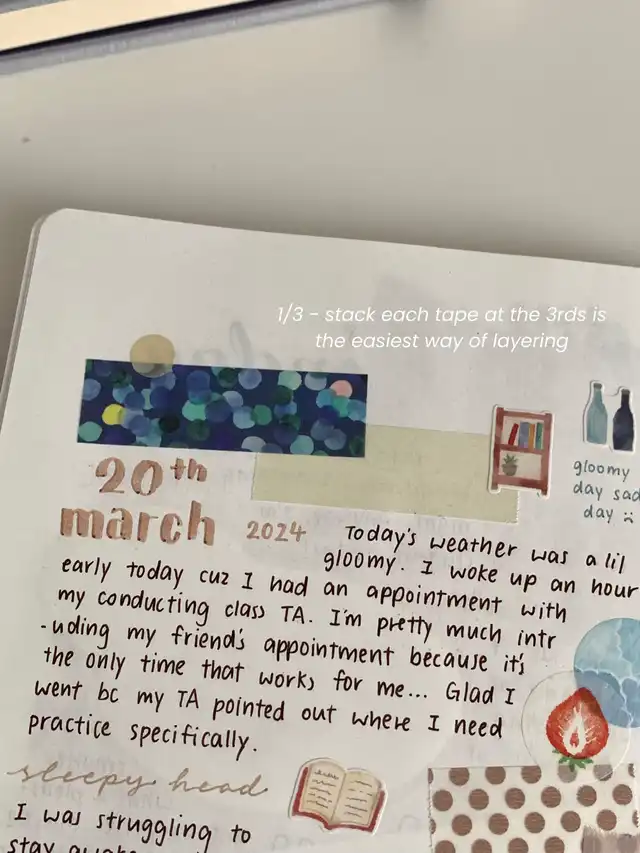 1/3 - stack each tape at the 3rds is
the easiest way of layering
20th
march 2024
gloomy
day sad
day :(
Today's weather was a lil
gloomy. I woke up an hour
early today cuz I had an appointment with
my conducting class TA. I'm pretty much intr
-uding my friend's appointment because it's
the only time that works for me... Glad I
went bc my TA pointed out where I need
practice specifically.
sleepy head
I was struggling to
stay awake